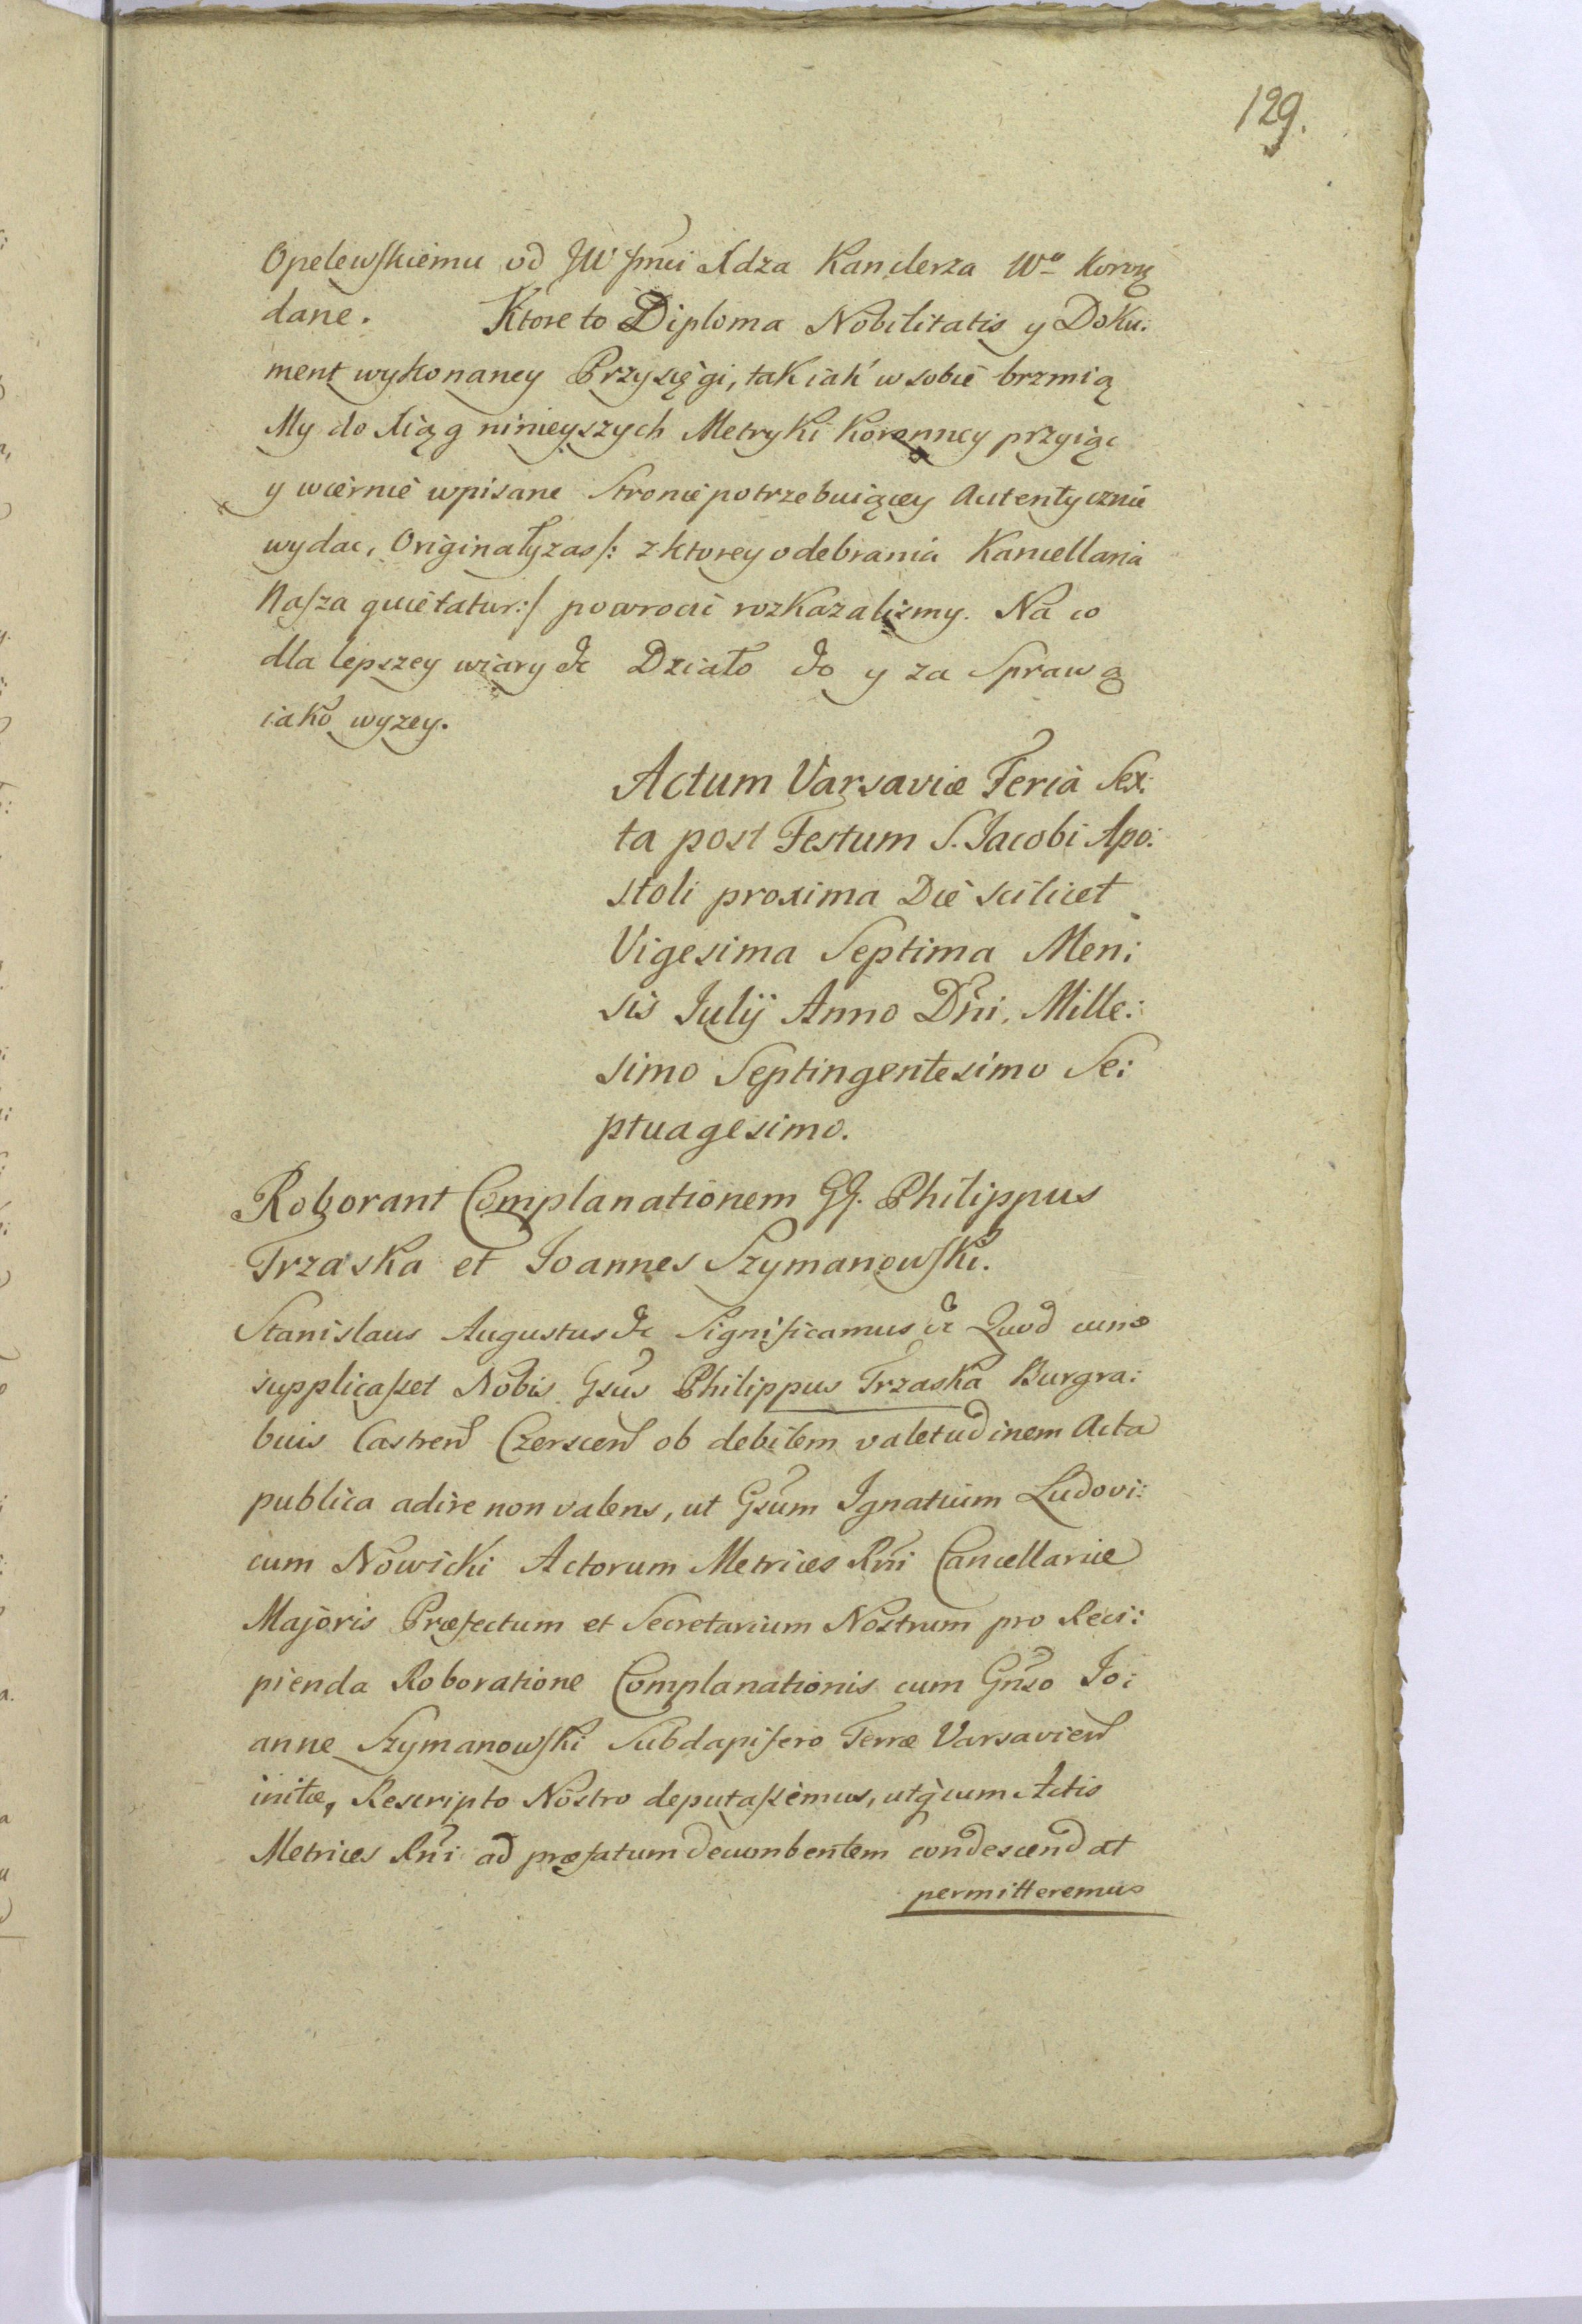 129.
Opelewskiemu od JW Jmci Xdza Kanclerza Wo Koro.
dane. Ktore to Diploma Nobilitatis y Doku:
ment wykonaney Przysięgi, tak iak w sobie brzmią
My do Xiąg ninieyszych Metryki Koronney przyiąc
y wiernie wpisane Stronie potrzebuiącey Autentycznie
wydac, Originały zas /: z ktorey odebrania Kancellaria
Nasza quietatur :/ powrocic rozkazalismy. Na co
dla lepszey wiary &c Działo &o y za Sprawą
iako wyzey.
Actum Varsaviæ Feria Sex:
ta post Festum S. Jacobi Apo:
stoli proxima Die scilicet
Vigesima Septima Men:
sis Julij Anno Dñi, Mille:
simo Septingentesimo Se:
ptuagesimo.
Roborant Complanationem GG. Philippus
Trzaska et Joannes Szymanowski.
Stanislaus Augustus &c Significamus &c Quod cum
supplicasset Nobis Gsus Philippus Trzaska Burgra:
bius Castren Czerscen ob debilem valetudinem Acta
publica adire non valens, ut Gsum Ignatium Ludovi:
cum Nowicki Actorum Metrices Rñi Cancellariæ
Majoris Præfectum et Secretarium Nostrum pro Reci:
pienda Roboratione Complanationis cum Gñso Jo:
anne Szymanowski Subdapifero Terræ Varsavien
initæ, Rescripto Nostro deputassemus, utq̀ cum Actis
Metrices Rñi ad præfatum decumbentem condescendat
permitteremus